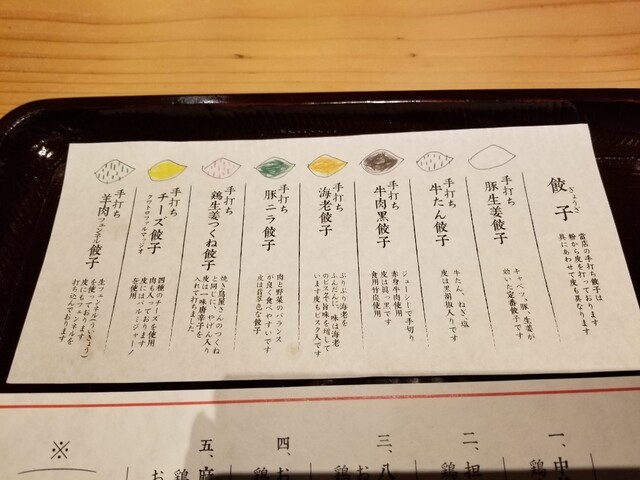 餃子
ぎょうざ
当店の手打ち餃子は
粉から皮を打っております
具にあわせて皮も異なります
手打ち
豚生姜餃子
キャベツ、豚、生姜が
効いた定番餃子です
手打ち
牛たん餃子
牛たん、ねぎ、塩
皮は黒胡椒入りです
手打ち
牛肉黒餃子
ジューシーで手切り
赤身牛肉使用
皮は真っ黒です
食用竹炭使用
手打ち
海老餃子
ぷりぷり海老を
ふんだんに、味は海老
のビスク旨味を増して
います皮もビスク入です
手打ち
豚ニラ餃子
肉と野菜のバランス
が良く食べやすいです
皮は翡翠色な餃子
手打ち
鶏生姜つくね餃子
焼き鳥屋さんのつくね
と同じに、やげん入り
皮は一味唐辛子を
入れて打ちました
手打ち
チーズ餃子
クワトロフォルマッジオ
四種のチーズを使用
肉も入っております
皮にはパルミジャーノ
を使用
手打ち
羊肉フェンネル餃子
生フェンネル(ういきょう)
を使っております
皮にもフェンネルを
打ち込んでおります
一、中
鶏
二、担
鶏
三、八
お
鶏
四、お
鶏
五、麻
鶏
お
※